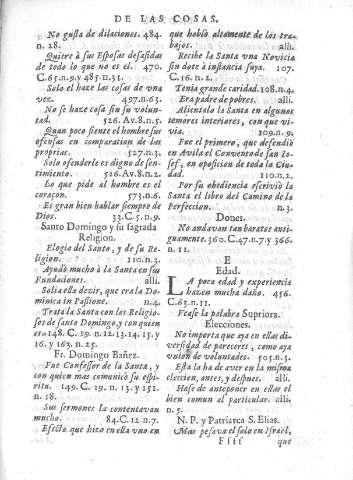 DE LAS COSAS.
No gusta de dilaciones. 484.
n. 28.
Quiere à sus Esposas desasidas
de todo lo que no es el. 470.
C. 65. n. 9. y 485. n. 31.
Solo el haze las cosas de una
vez. 497. n. 63.
No se haze cosa sin su volun-
tad. 526. Av. 8. n. 5.
Quan poco siente el hombre sus
ofensas en comparation de las
proprias. 527. n. 3.
Solo ofenderle es digno de sen-
timiento. 526. Av. 8. n. 2.
Lo que pide al hombre es el
coraçon. 573. n. 6.
Es gran bien hablar siempre de
Dios. 33. C. 5. n. 9.
Santo Domingo y su sagrada
Religion.
Elogia del Santo, y de su Re-
ligion. 110. n. 3.
Ayudò mucho à la Santa en sus
Fundaciones. alli.
Solia ella dezir, que era la Do-
minica in Passione. n. 4.
Trata la Santa con los Religio-
sos de santo Domingo, y con quien
es 148. C. 19. n. 12. 13. 14. 15. y
16. y 163. n. 25.
Fr. Domingo Bañez.
Fue Confessor de la Santa, y
con quien mas comunicò su espi-
ritu. 149. C. 19. n. 13. y 151.
n. 18.
Sus sermones la contentavan
mucho. 84. C. 12. n. 7.
Efecto que hizo en ella uno en
que hablò altamente de los tra-
bajos. alli.
Recibe la Santa una Novicia
sin dote à instancia suya. 107.
C. 16. n. 2.
Tenia grande caridad. 108. n. 4.
Era padre de pobres. alli.
Alientolo la Santa en algunos
temores interiores, con que vi-
via. 109. n. 9.
Fue el primero, que defendiò
en Avila el Convento de san Io-
sef, en oposicion de toda la Ciu-
dad. 110. n. 2.
Por su obediencia escriviò la
Santa el libro del Camino de la
Perfeccion. n. 3.
Dones.
No andavan tan baratos anti-
guamente. 360. C. 47. n. 7. y 366.
n. 11.
E
Edad.
LA poca edad y experiencia
hazen mucho daño. 456.
C. 63. n. 11.
Vease la palabra Supriora.
Elecciones.
No importa que aya en ellas di-
versidad de pareceres, como aya
union de voluntades. 505. n. 3.
Esta la ha de aver en la misma
eleccion, antes, y despues. alli.
Hase de anteponer en ellas el
bien comun al particular. alli.
n. 5.
N. P. y Patriarca S. Elias.
Mas pesava el solo en Israël,
Ffff que